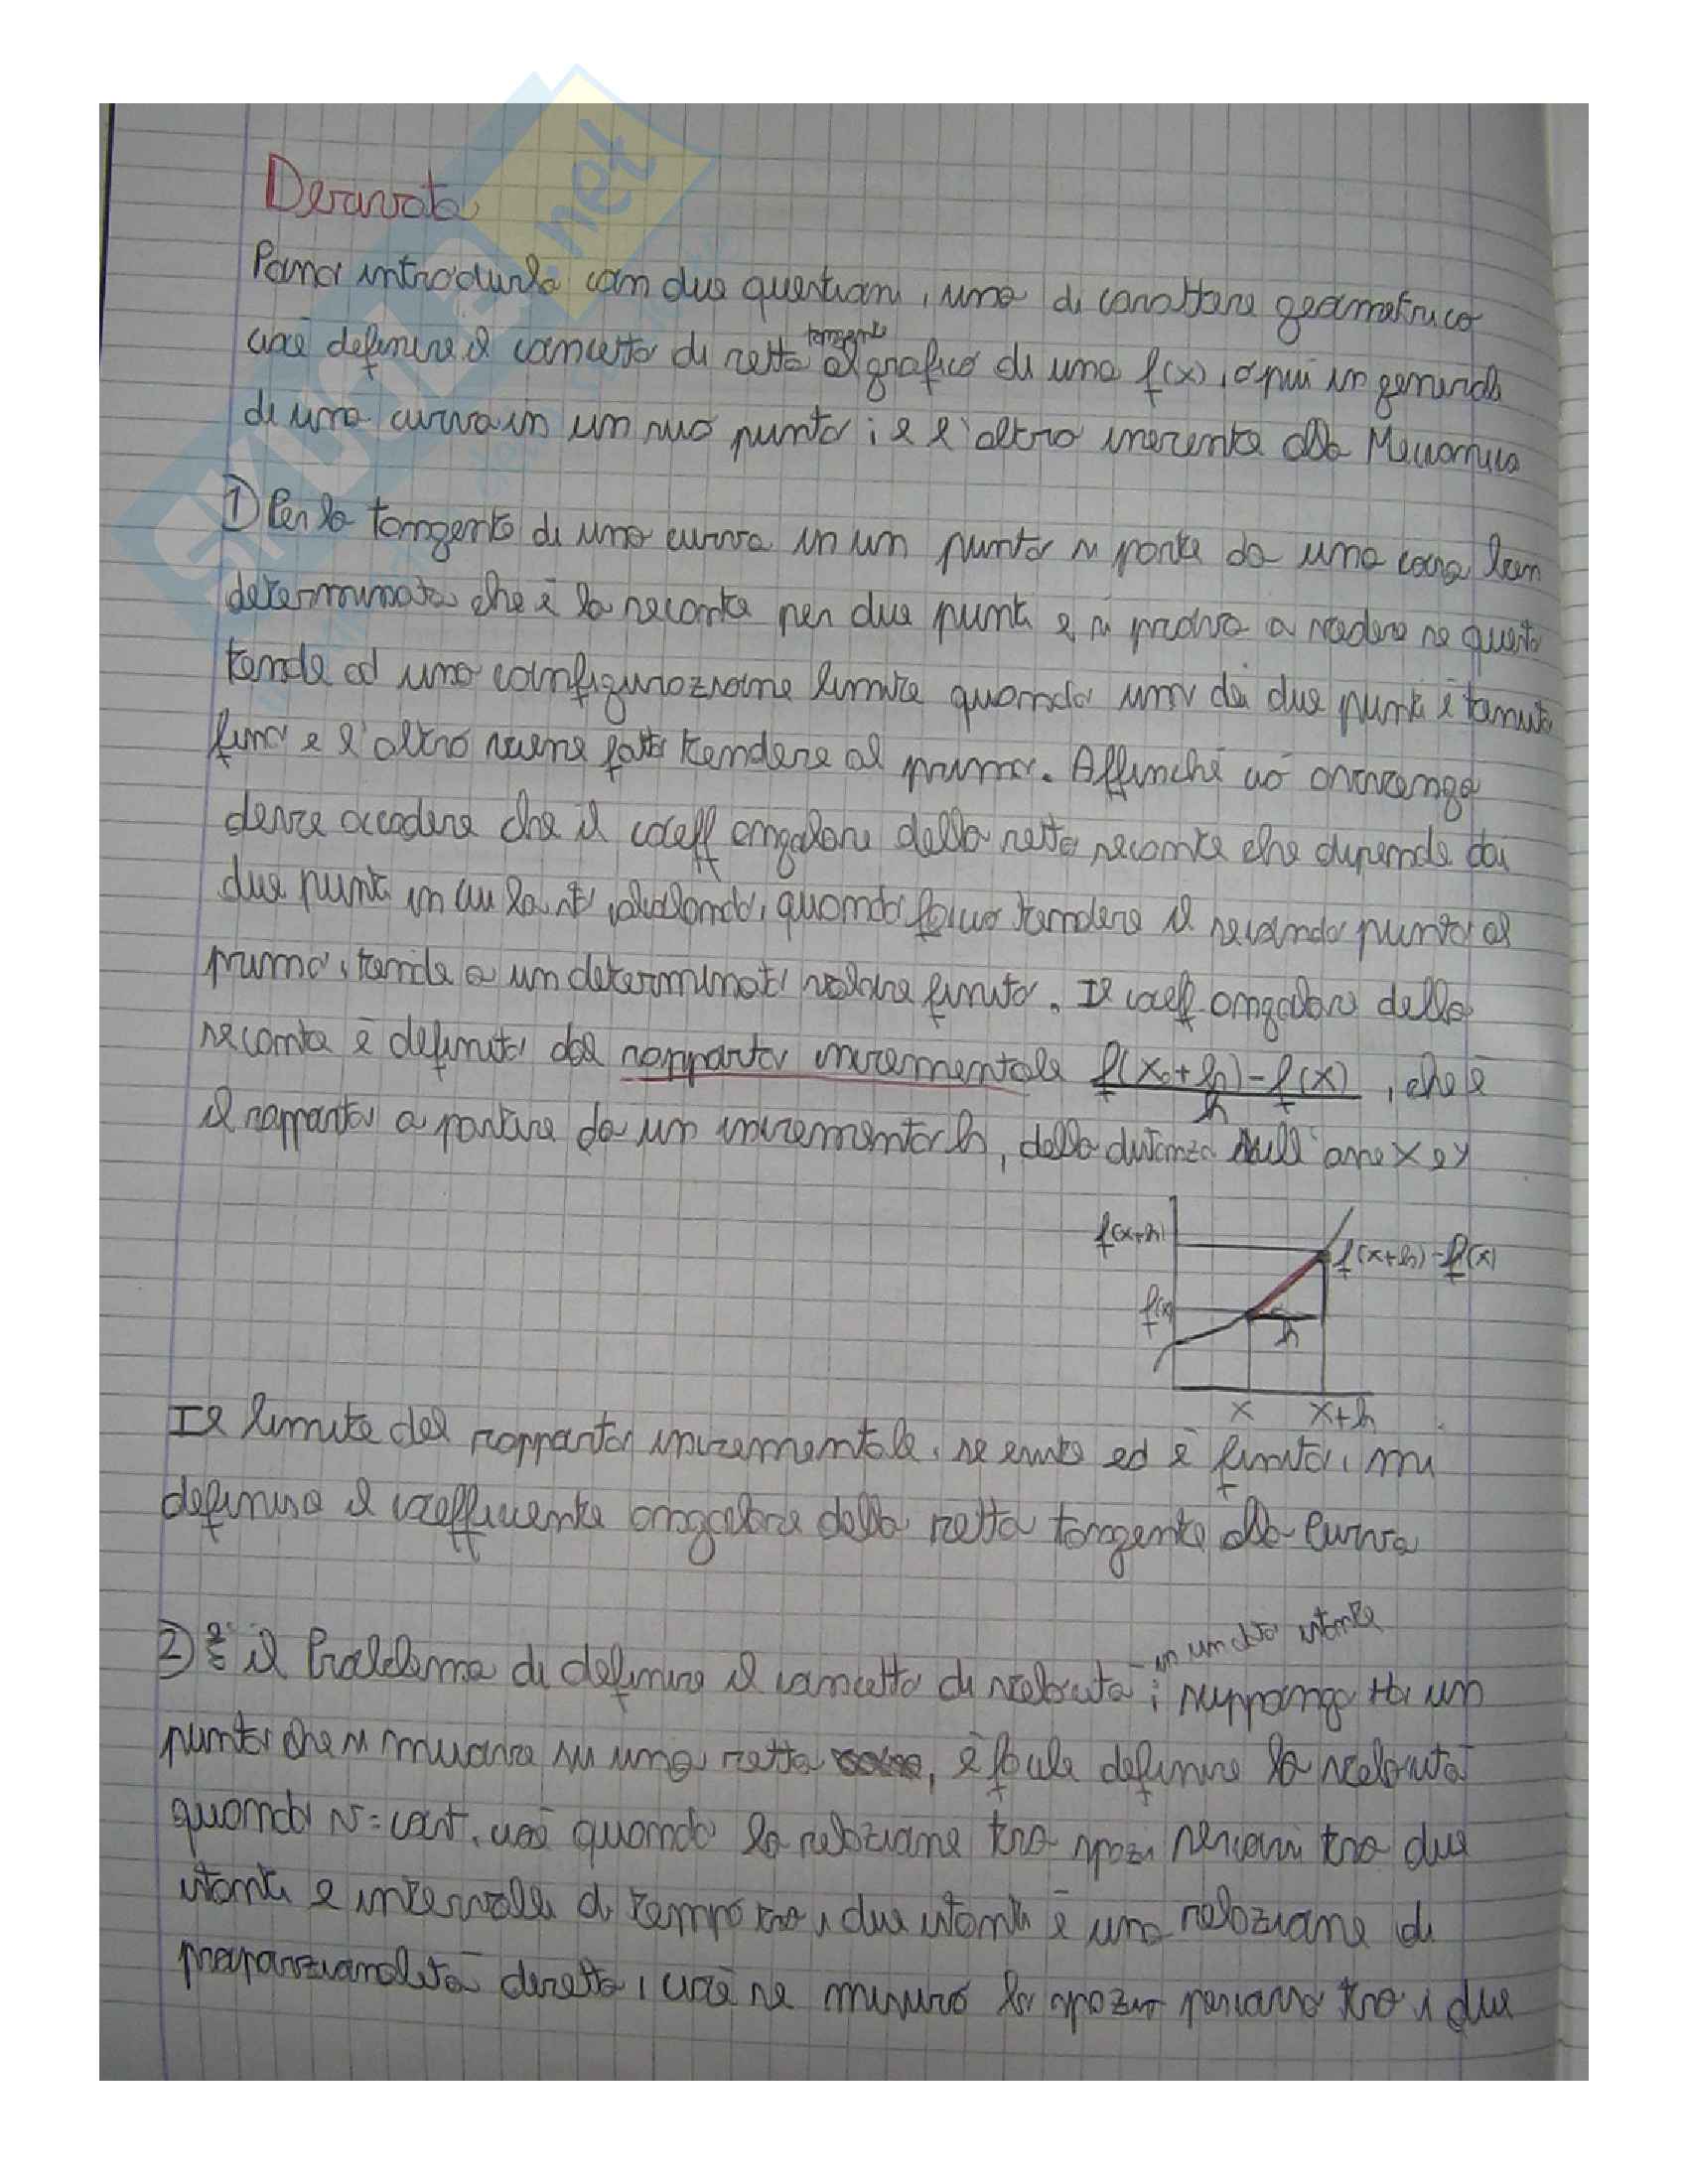 Derivata
Posso introdurla con due questioni, una di carattere geometrico
cioè definire il concetto di retta tangente al grafico di una f(x), o più in generale
di una curva in un suo punto; e l'altro inerente alla Meccanica
① Per la tangente di una curva in un punto si parte da una cosa ben
determinata che è la secante per due punti e si prova a vedere se questa
tende ad una configurazione limite quando uno dei due punti è tenuto
fisso e l'altro viene fatto tendere al primo. Affinché ciò avvenga
deve accadere che il coeff angolare della retta secante che dipende dai
due punti in cui la sto calcolando, quando faccio tendere il secondo punto al
primo, tende a un determinato valore finito. Il coeff angolare della
secante è definito dal rapporto incrementale f(x₀+h)-f(x) / h, che è
il rapporto a partire da un incremento h, della distanza sull'asse x e y
f(x+h)
f(x+h)-f(x)
f(x)
h
x x+h
Il limite del rapporto incrementale, se esiste ed è finito, mi
definisce il coefficiente angolare della retta tangente alla curva
② È il Problema di definire il concetto di velocità in un dato istante; suppongo ho un
punto che si muove su una retta, è facile definire la velocità
quando v=cost, cioè quando la relazione tra spazi percorsi tra due
istanti e intervalli di tempo tra i due istanti è una relazione di
proporzionalità diretta, cioè se misuro lo spazio percorso tra i due
SKUOLA.net